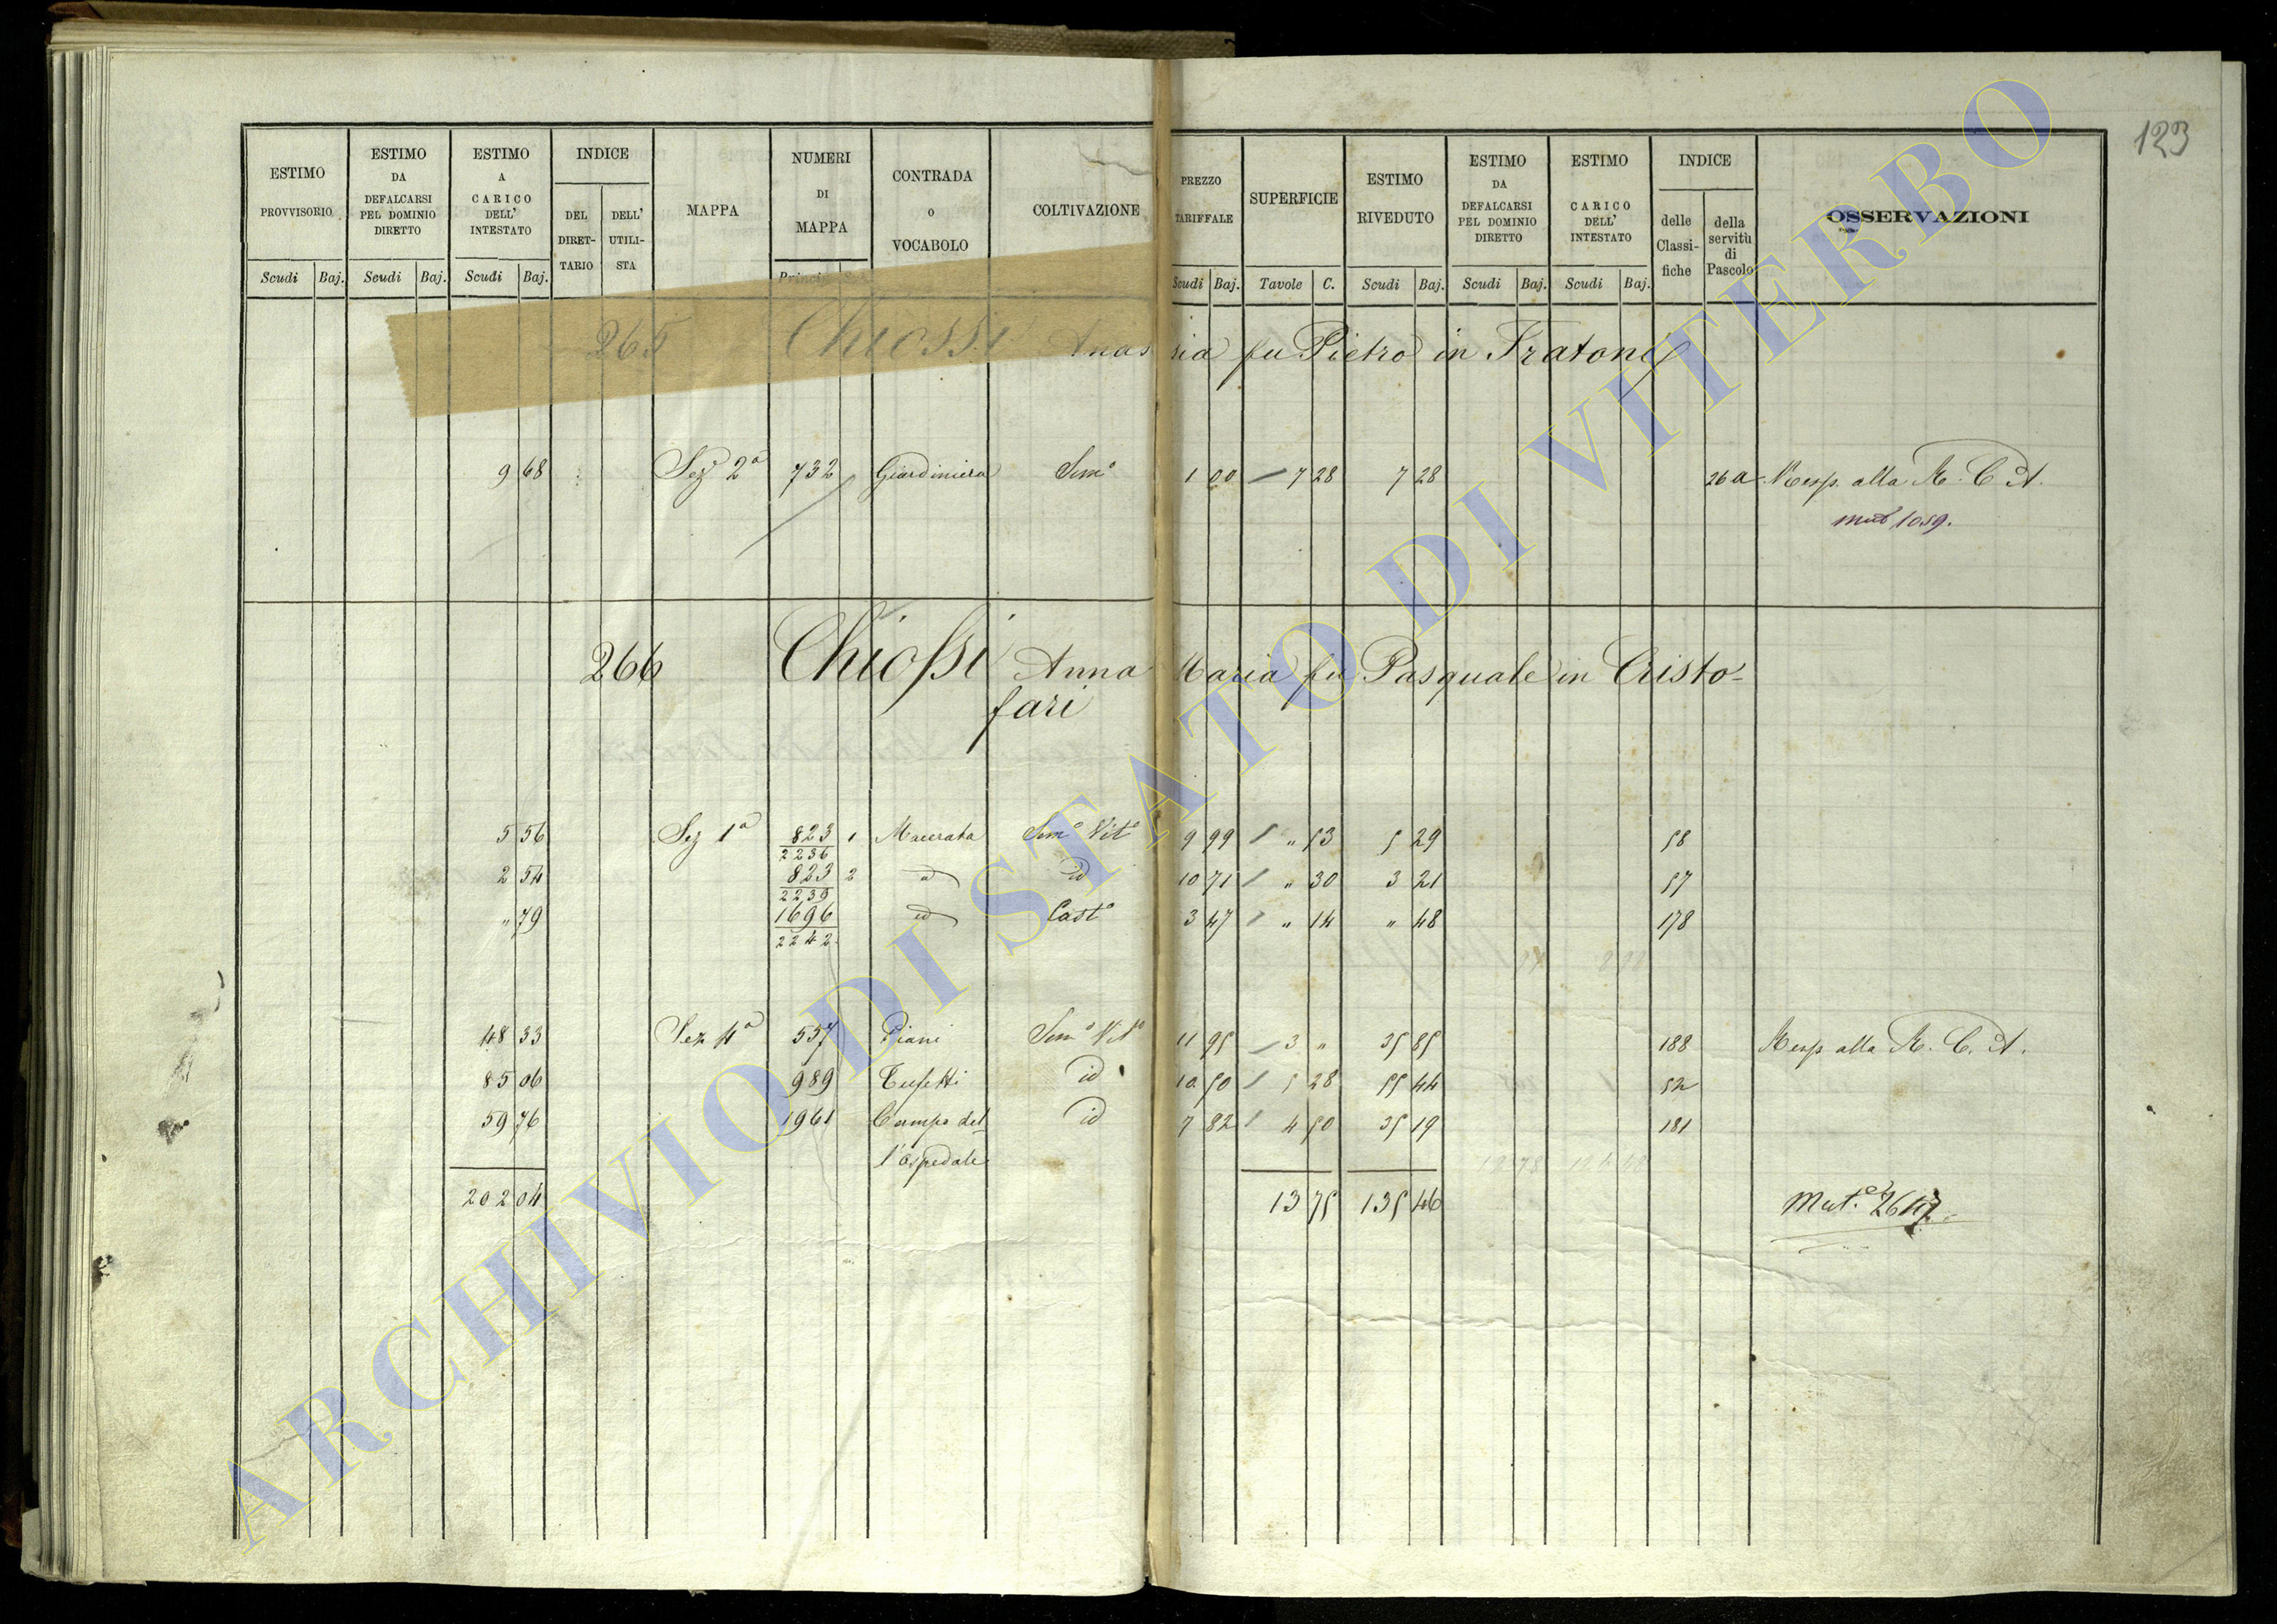 123
ESTIMO PROVVISORIO Scudi Baj.
ESTIMO DA DEFALCARSI PEL DOMINIO DIRETTO Scudi Baj.
ESTIMO A CARICO DELL' INTESTATO Scudi Baj.
INDICE DEL DIRETTARIO DELL' UTILISTA
MAPPA
NUMERI DI MAPPA
CONTRADA O VOCABOLO
COLTIVAZIONE
PREZZO TARIFFALE Scudi Baj.
SUPERFICIE Tavole C.
ESTIMO RIVEDUTO Scudi Baj.
ESTIMO DA DEFALCARSI PEL DOMINIO DIRETTO Scudi Baj.
ESTIMO CARICO DELL' INTESTATO Scudi Baj.
INDICE delle Classifiche della servitù di Pascolo
OSSERVAZIONI
265 Chiossi Anas sia fu Pietro in Fratoni
9 68 Sez 2a 732 Giardiniera Semo 1 00 7 28 7 28 26a Resp. alla R. C. A.
mut 1059.
266 Chiossi Anna Maria fu Pasquale in Cristo-
fari
5 56 Sez 1a 823/2236 1 Macerata Semo Vito 9 99 " 53 5 29 58
2 54 823/2239 2 id id 10 71 " 30 3 21 57
" 79 1696/2242 id Casto 3 47 " 14 " 48 178
48 33 Sez 4a 557 Piani Semo Vito 11 95 3 " 35 85 188 Resp alla R. C. A.
85 06 989 Tufetti id 10 50 5 28 55 44 52
59 76 1961 Campo del- id 7 82 4 50 35 19 181
l'Ospedale
202 04 13 75 135 46 Muto.
ARCHIVIO DI STATO DI VITERBO